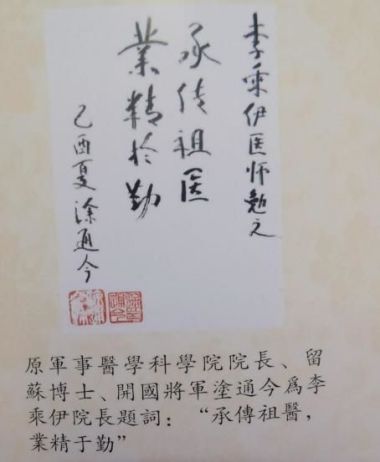 李乘伊医师勉之
承传祖医
業精於勤
乙酉夏 涂通今
原軍事醫學科學院院長、留
蘇博士、開國將軍塗通今爲李
乘伊院長題詞：“承傳祖醫，
業精于勤”